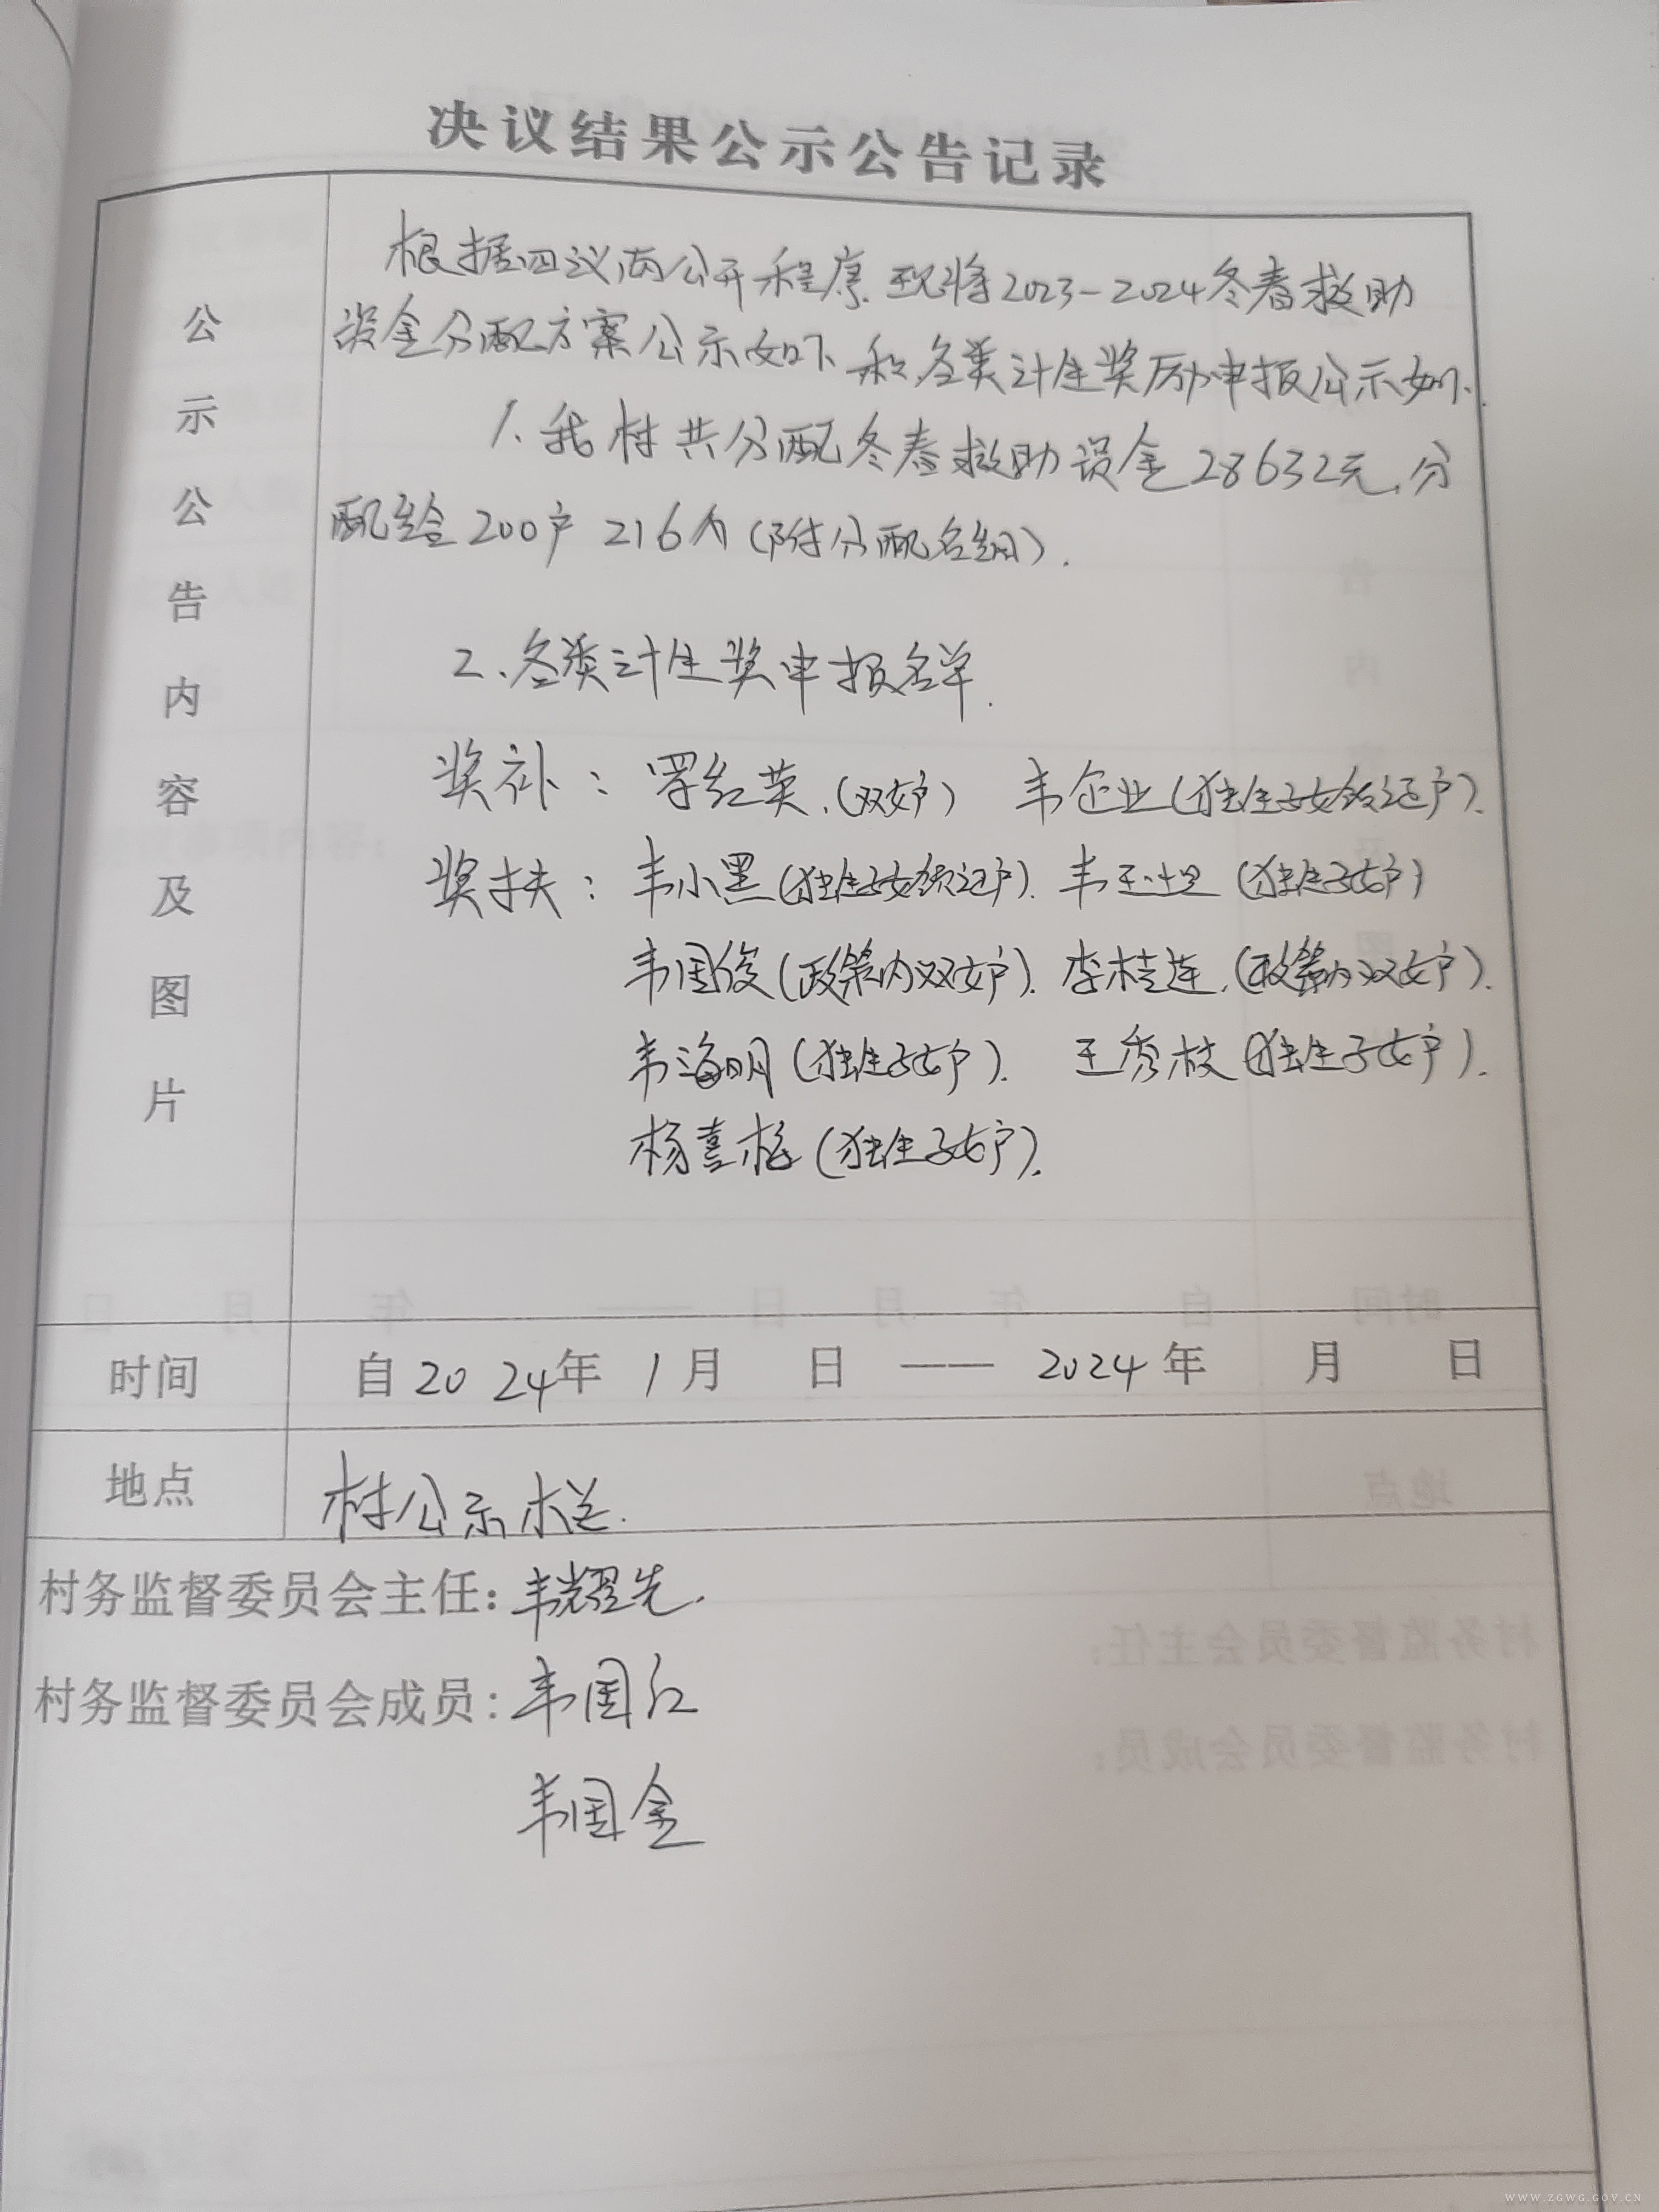 决议结果公示公告记录
公示公告内容及图片
根据四议两公开程序,现将2023-2024冬春救助
资金分配方案公示如下和各类计生奖励申报公示如下.
1.我村共分配冬春救助资金28632元,分
配给200户216人(附分配名细).
2、各类计生奖申报名单.
奖补:罗红英.(双女户) 韦企业(独生子女领证户).
奖扶:韦小黑(独生子女领证户). 韦 (独生子女户)
韦国俊(政策内双女户). 李桂莲.(政策内双女户).
韦海明(独生子女户). 王秀枝(独生子女户).
杨喜 (独生子女户).
时间 自2024年1月 日——2024年 月 日
地点 村公示栏.
村务监督委员会主任:韦耀先.
村务监督委员会成员:韦国江
韦国金
WWW.ZGWG.GOV.CN